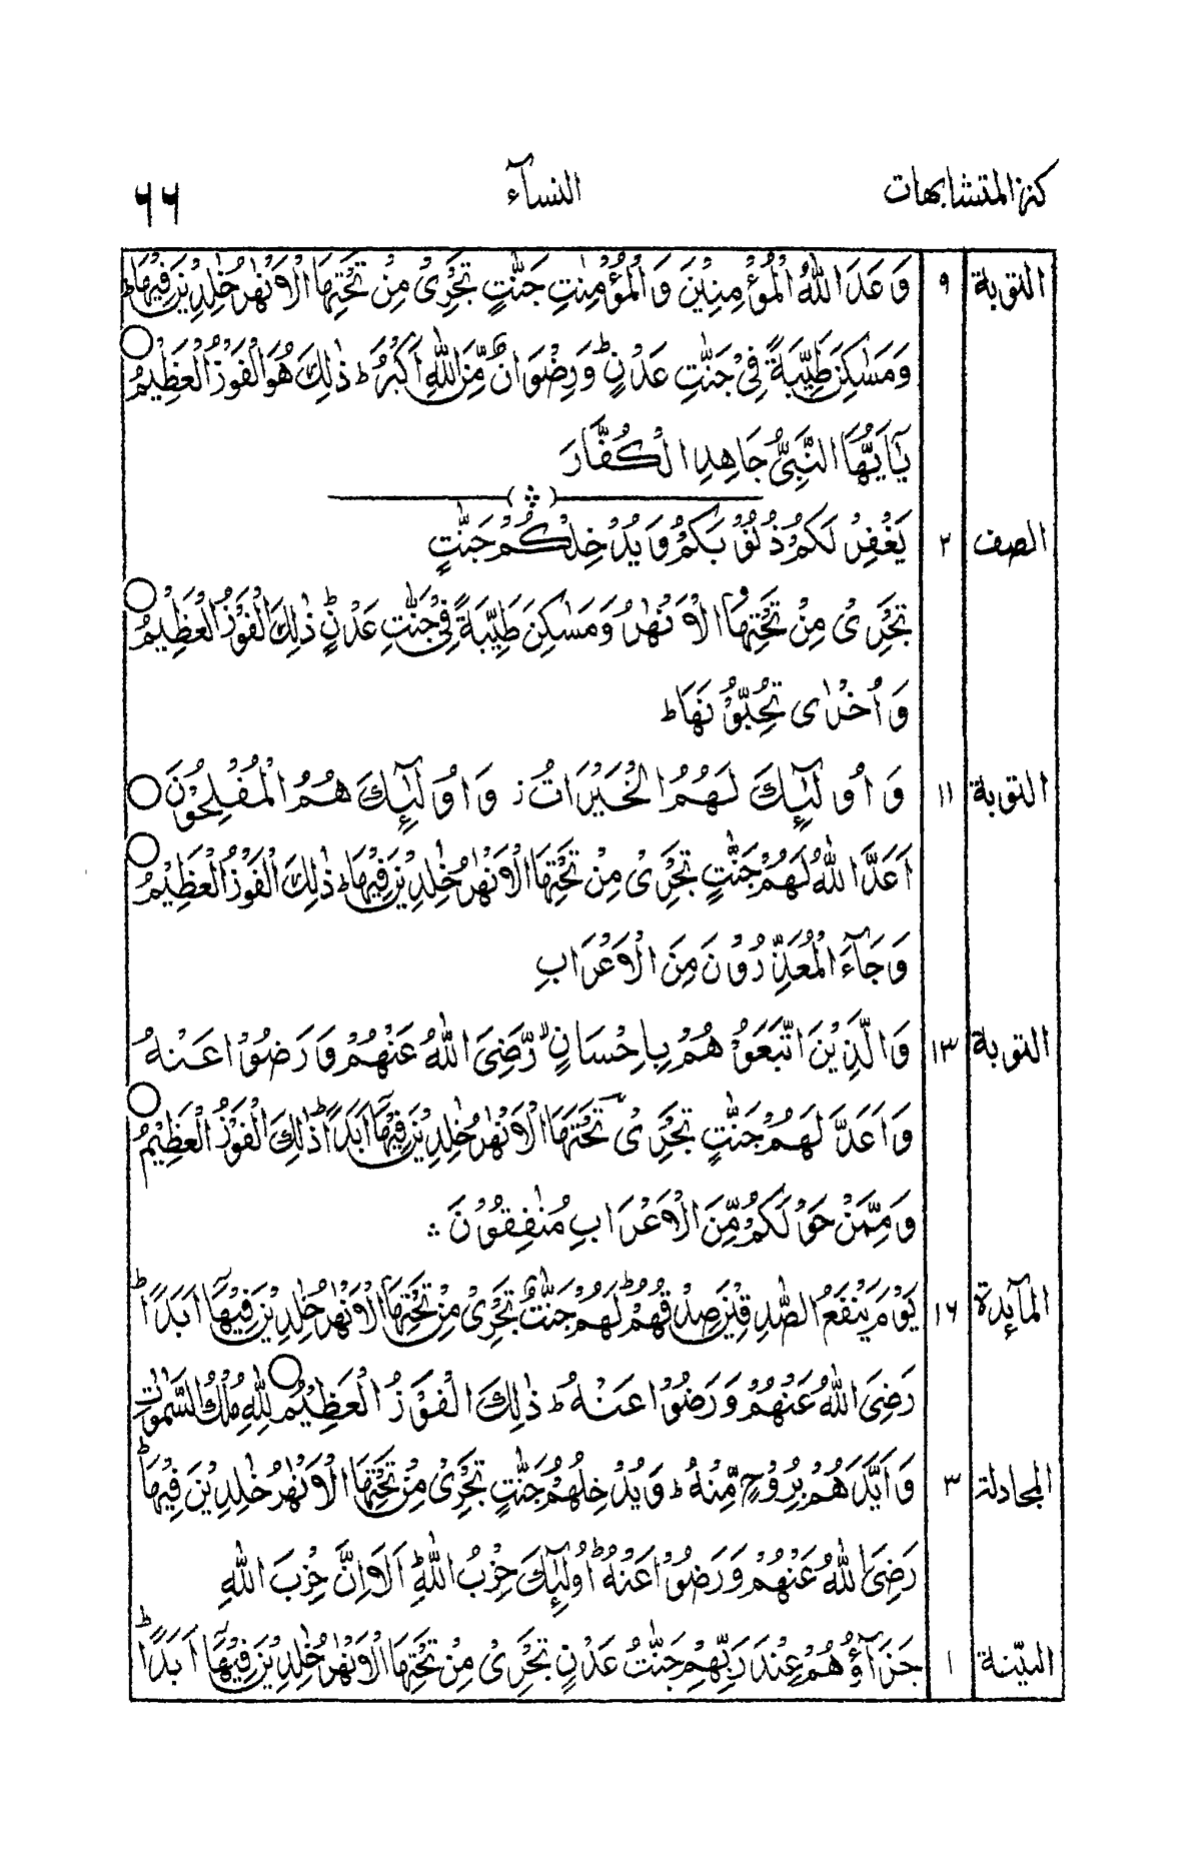 كنز المتشابهات النسآء ٦٦
التوبة ٩ وَعَدَ اللّٰهُ الْمُؤْمِنِيْنَ وَالْمُؤْمِنٰتِ جَنّٰتٍ تَجْرِىْ مِنْ تَحْتِهَا الْاَنْهٰرُ خٰلِدِيْنَ فِيْهَا ط
وَمَسٰكِنَ طَيِّبَةً فِىْ جَنّٰتِ عَدْنٍ ط وَرِضْوَانٌ مِّنَ اللّٰهِ اَكْبَرُ ط ذٰلِكَ هُوَ الْفَوْزُ الْعَظِيْمُ ○
يٰٓاَيُّهَا النَّبِىُّ جَاهِدِ الْكُفَّارَ
الصف ٢ يَغْفِرْ لَكُمْ ذُنُوْبَكُمْ وَيُدْخِلْكُمْ جَنّٰتٍ
تَجْرِىْ مِنْ تَحْتِهَا الْاَنْهٰرُ وَمَسٰكِنَ طَيِّبَةً فِىْ جَنّٰتِ عَدْنٍ ط ذٰلِكَ الْفَوْزُ الْعَظِيْمُ ○
وَاُخْرٰى تُحِبُّوْنَهَا ط
التوبة ١١ وَاُولٰٓئِكَ لَهُمُ الْخَيْرَاتُ ز وَاُولٰٓئِكَ هُمُ الْمُفْلِحُوْنَ ○
اَعَدَّ اللّٰهُ لَهُمْ جَنّٰتٍ تَجْرِىْ مِنْ تَحْتِهَا الْاَنْهٰرُ خٰلِدِيْنَ فِيْهَا ط ذٰلِكَ الْفَوْزُ الْعَظِيْمُ ○
وَجَآءَ الْمُعَذِّرُوْنَ مِنَ الْاَعْرَابِ
التوبة ١٣ وَالَّذِيْنَ اتَّبَعُوْهُمْ بِاِحْسَانٍ رَّضِىَ اللّٰهُ عَنْهُمْ وَرَضُوْا عَنْهُ
وَاَعَدَّ لَهُمْ جَنّٰتٍ تَجْرِىْ تَحْتَهَا الْاَنْهٰرُ خٰلِدِيْنَ فِيْهَآ اَبَدًا ط ذٰلِكَ الْفَوْزُ الْعَظِيْمُ ○
وَمِمَّنْ حَوْلَكُمْ مِّنَ الْاَعْرَابِ مُنٰفِقُوْنَ ؞
المآئدة ١٦ يَوْمُ يَنْفَعُ الصّٰدِقِيْنَ صِدْقُهُمْ ط لَهُمْ جَنّٰتٌ تَجْرِىْ مِنْ تَحْتِهَا الْاَنْهٰرُ خٰلِدِيْنَ فِيْهَآ اَبَدًا ط
رَضِىَ اللّٰهُ عَنْهُمْ وَرَضُوْا عَنْهُ ط ذٰلِكَ الْفَوْزُ الْعَظِيْمُ ○ لِلّٰهِ مُلْكُ السَّمٰوٰتِ
المجادلة ٣ وَاَيَّدَهُمْ بِرُوْحٍ مِّنْهُ ط وَيُدْخِلُهُمْ جَنّٰتٍ تَجْرِىْ مِنْ تَحْتِهَا الْاَنْهٰرُ خٰلِدِيْنَ فِيْهَا ط
رَضِىَ اللّٰهُ عَنْهُمْ وَرَضُوْا عَنْهُ ط اُولٰٓئِكَ حِزْبُ اللّٰهِ ط اَلَآ اِنَّ حِزْبَ اللّٰهِ
البيّنة ١ جَزَآؤُهُمْ عِنْدَ رَبِّهِمْ جَنّٰتُ عَدْنٍ تَجْرِىْ مِنْ تَحْتِهَا الْاَنْهٰرُ خٰلِدِيْنَ فِيْهَآ اَبَدًا ط